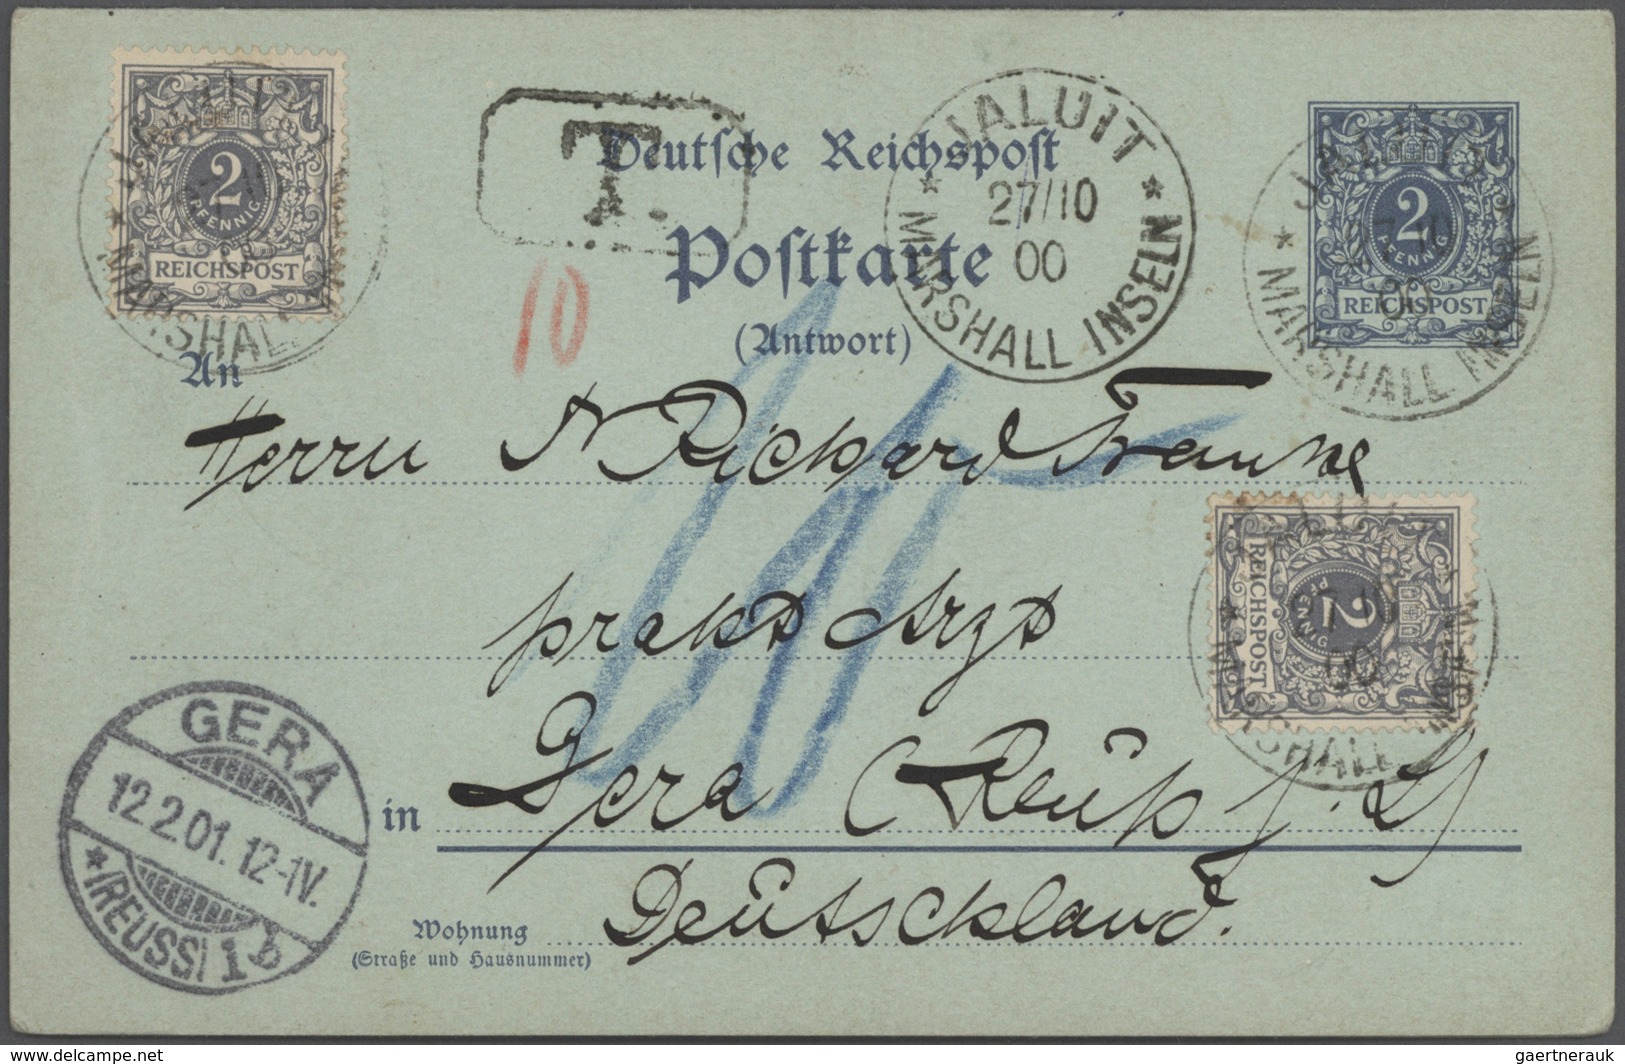 2
PFENNIG
REICHSPOST
MARSHALL
T.
Deutsche Reichspost
Postkarte
(Antwort)
JALUIT
27/10
00
MARSHALL INSELN
2
PFENNIG
REICHSPOST
JALUIT
MARSHALL INSELN
10
An
Herrn Richard Franke
prakt Arzt
2
PFENNIG
REICHSPOST
27/10
00
MARSHALL
in Gera (Reuß j. L)
Deutschland.
Wohnung
(Straße und Hausnummer)
GERA
12.2.01. 12-1V.
(REUSS) 1 b
delcampe.net
gaertnerauk